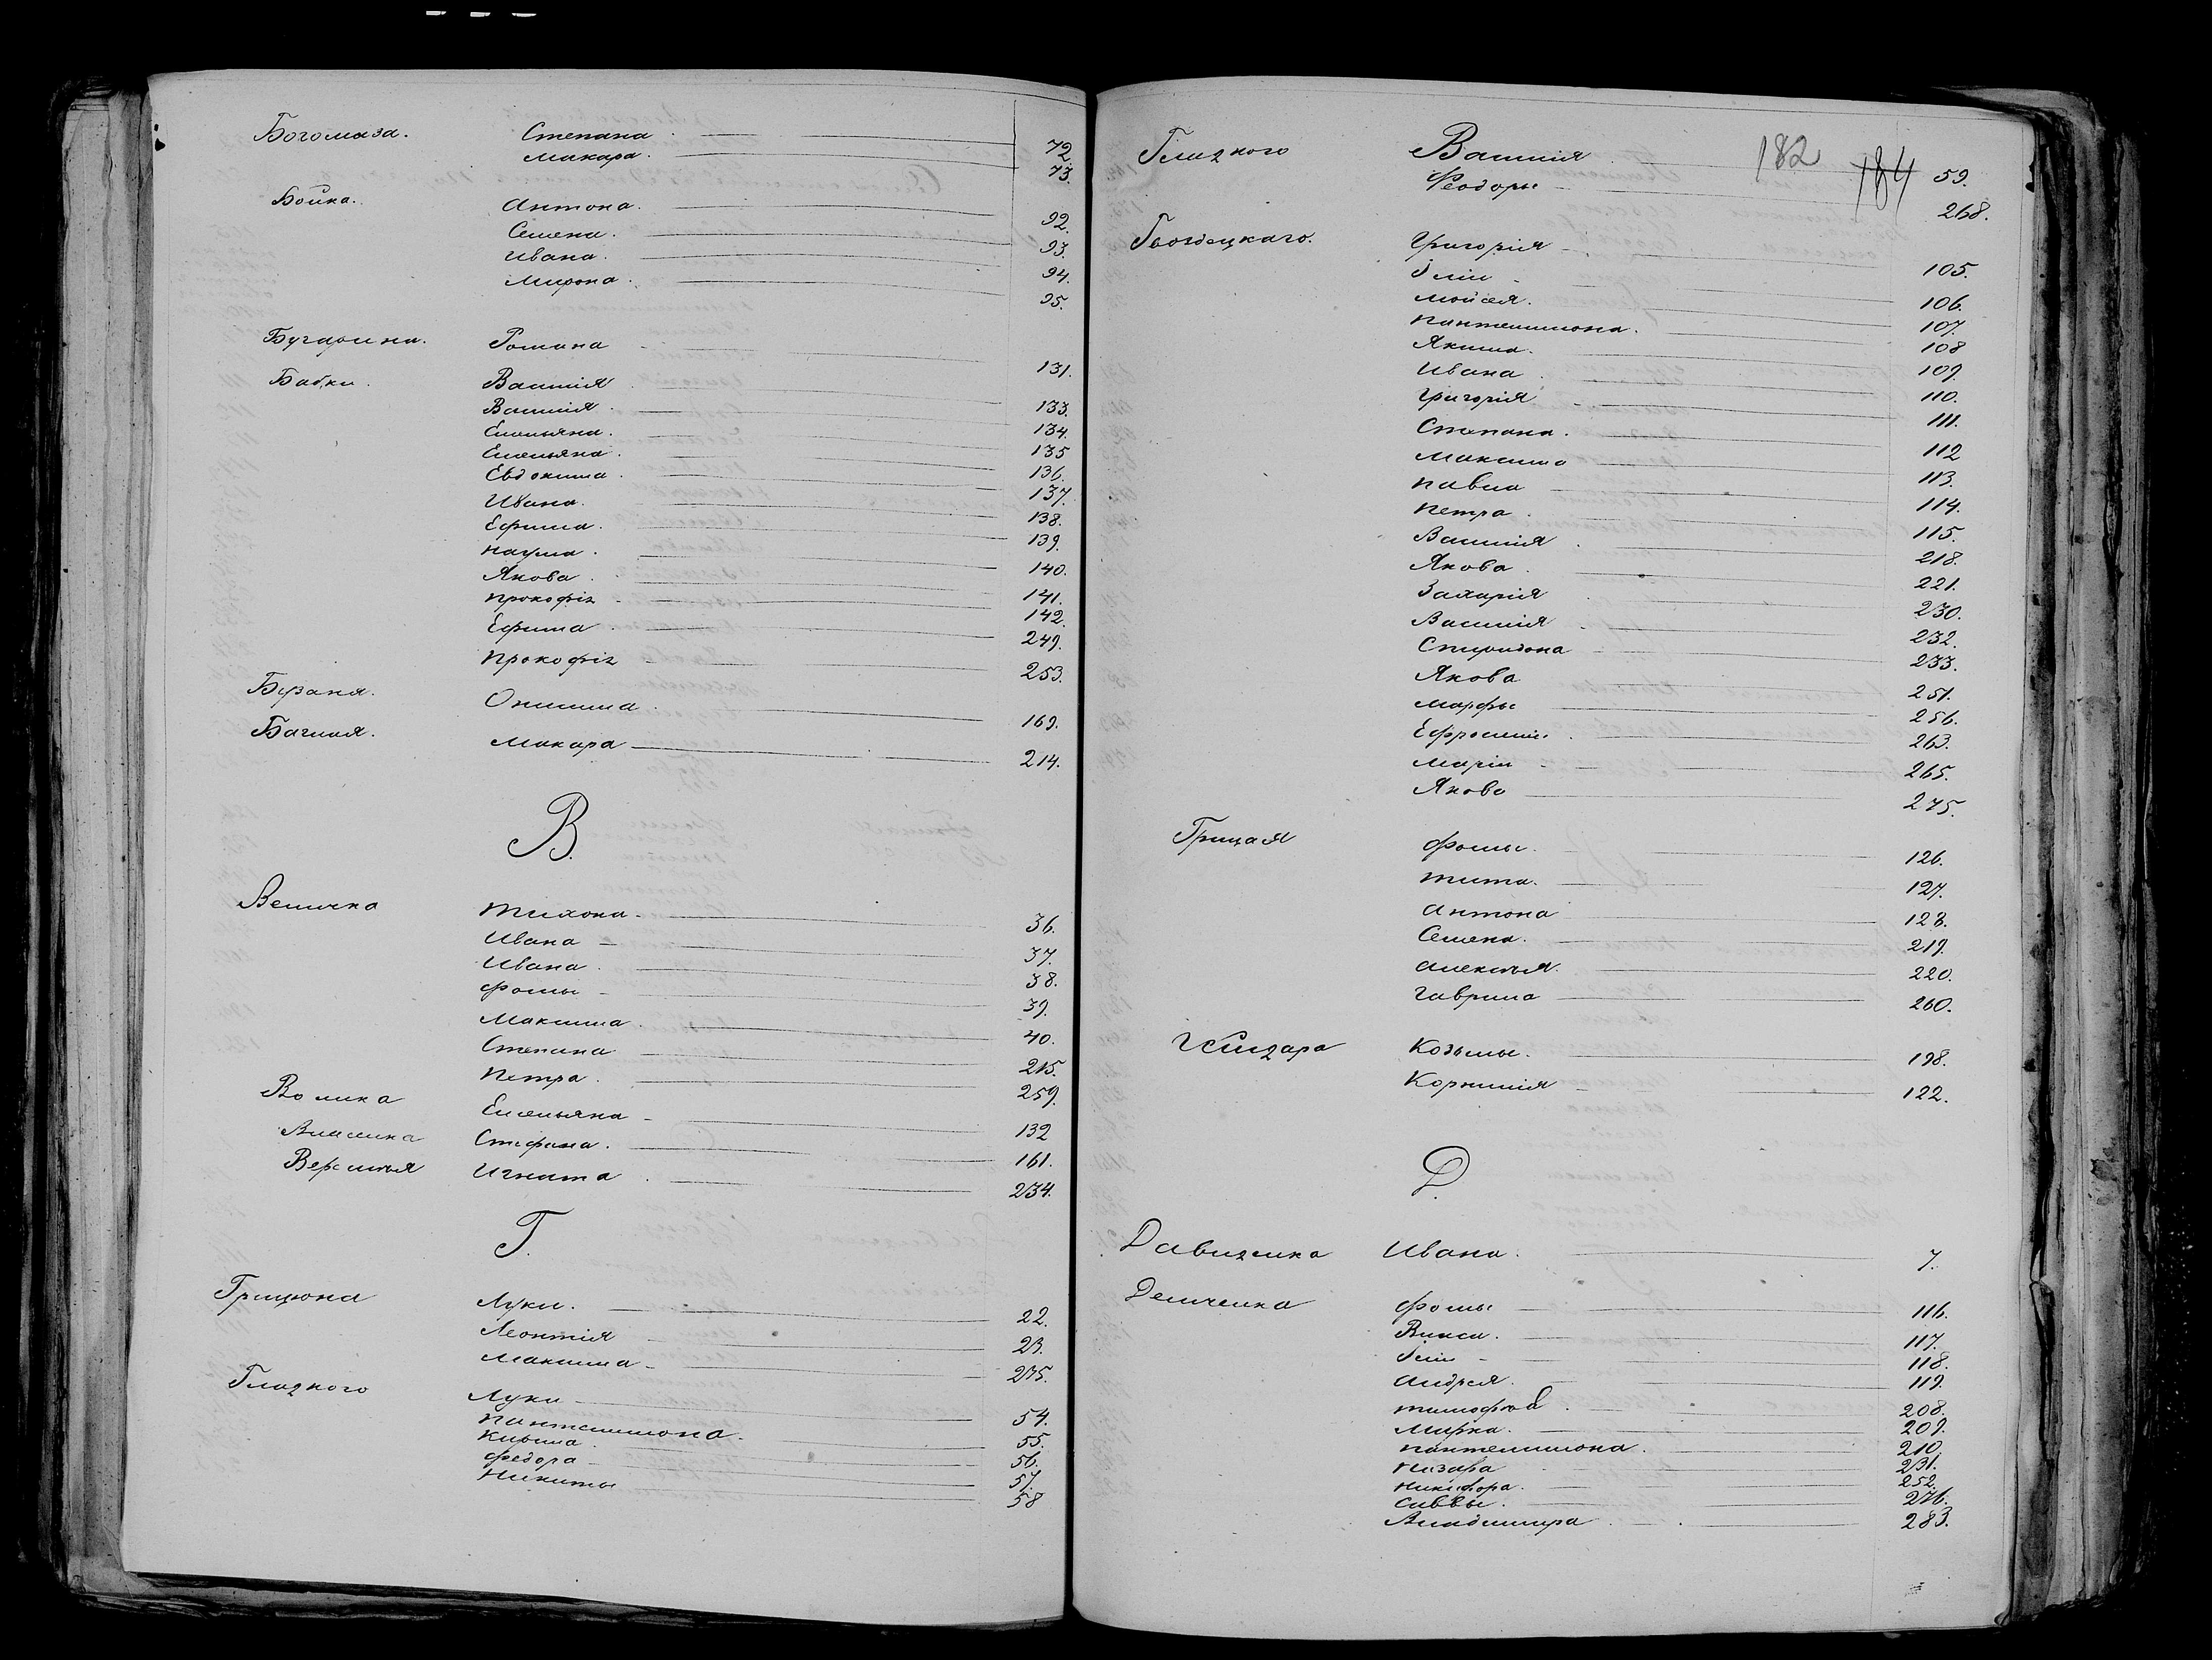 Богомаза. Степана 72.
Макара. 73.
Бойка. Антона. 92.
Семена. 93.
Ивана. 94.
Мирона. 95.
Бугарина. Романа 131.
Бабки. Василія 133.
Василія 134.
Емельяна. 135
Емельяна. 136.
Евдокима. 137.
Ивана. 138.
Ефима. 139.
Наума. 140.
Якова. 141.
Прокофія 142.
Ефима 249.
Прокофія 253.
Онисима 169.
Макара 214.
В.
Величка Тихона 36.
Ивана 37.
Ивана. 38.
Фомы 39.
Максима. 40.
Степана 215.
Петра. 259.
Волика Емельяна 132
Власенка Стефана. 161.
Игната 234.
Г.
Грицюна Луки. 22.
Леонтія 23.
Максима 275.
Гладкого Луки 54.
Пантелимона. 55.
Кирила. 56.
Федора 57.
Никиты 58
182 184
Гладкого Василія 59.
Феодоры 268.
Гвоздецкаго. Григорія 105.
Іліи 106.
Мойсея. 107.
Пантелимона. 108
Якима. 109.
Ивана 110.
Григорія 111.
Степана. 112
Максима 113.
Павла 114.
Петра. 115.
Василія 218.
Якова 221.
Захарія 230.
Василія 232.
Спиридона 233.
Якова 251.
Марфы 256.
Ефросиніи. 263.
Маріи 265.
Якова 275.
Грицая Фомы. 126.
Тита. 127.
Антона 128.
Семена. 219.
Алексѣя. 220.
Гаврила 260.
Козьмы. 198.
Корнилія 122.
Д.
Давиденка Ивана. 7.
Демченка Фомы 116.
Власа. 117.
Іліи 118.
Андрея. 119.
Тимофѣя 208.
Марка. 209.
Пантелимона. 210.
Назара 231.
Никифора. 252.
Саввы. 276.
Владимира 283.